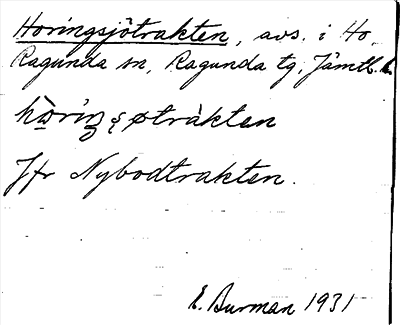 Horingsjötrakten, avs. i Ho,
Ragunda sn, Ragunda tg, Jämtl. l.
Jfr Nybodtrakten.
E. Burman 1931